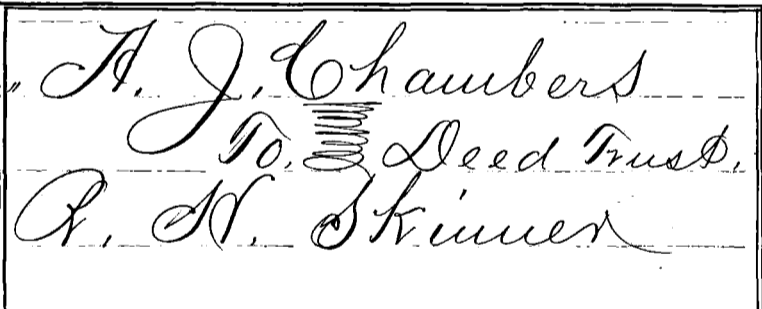 H. J. Chambers
To. Deed Trust.
R. H. Skinner